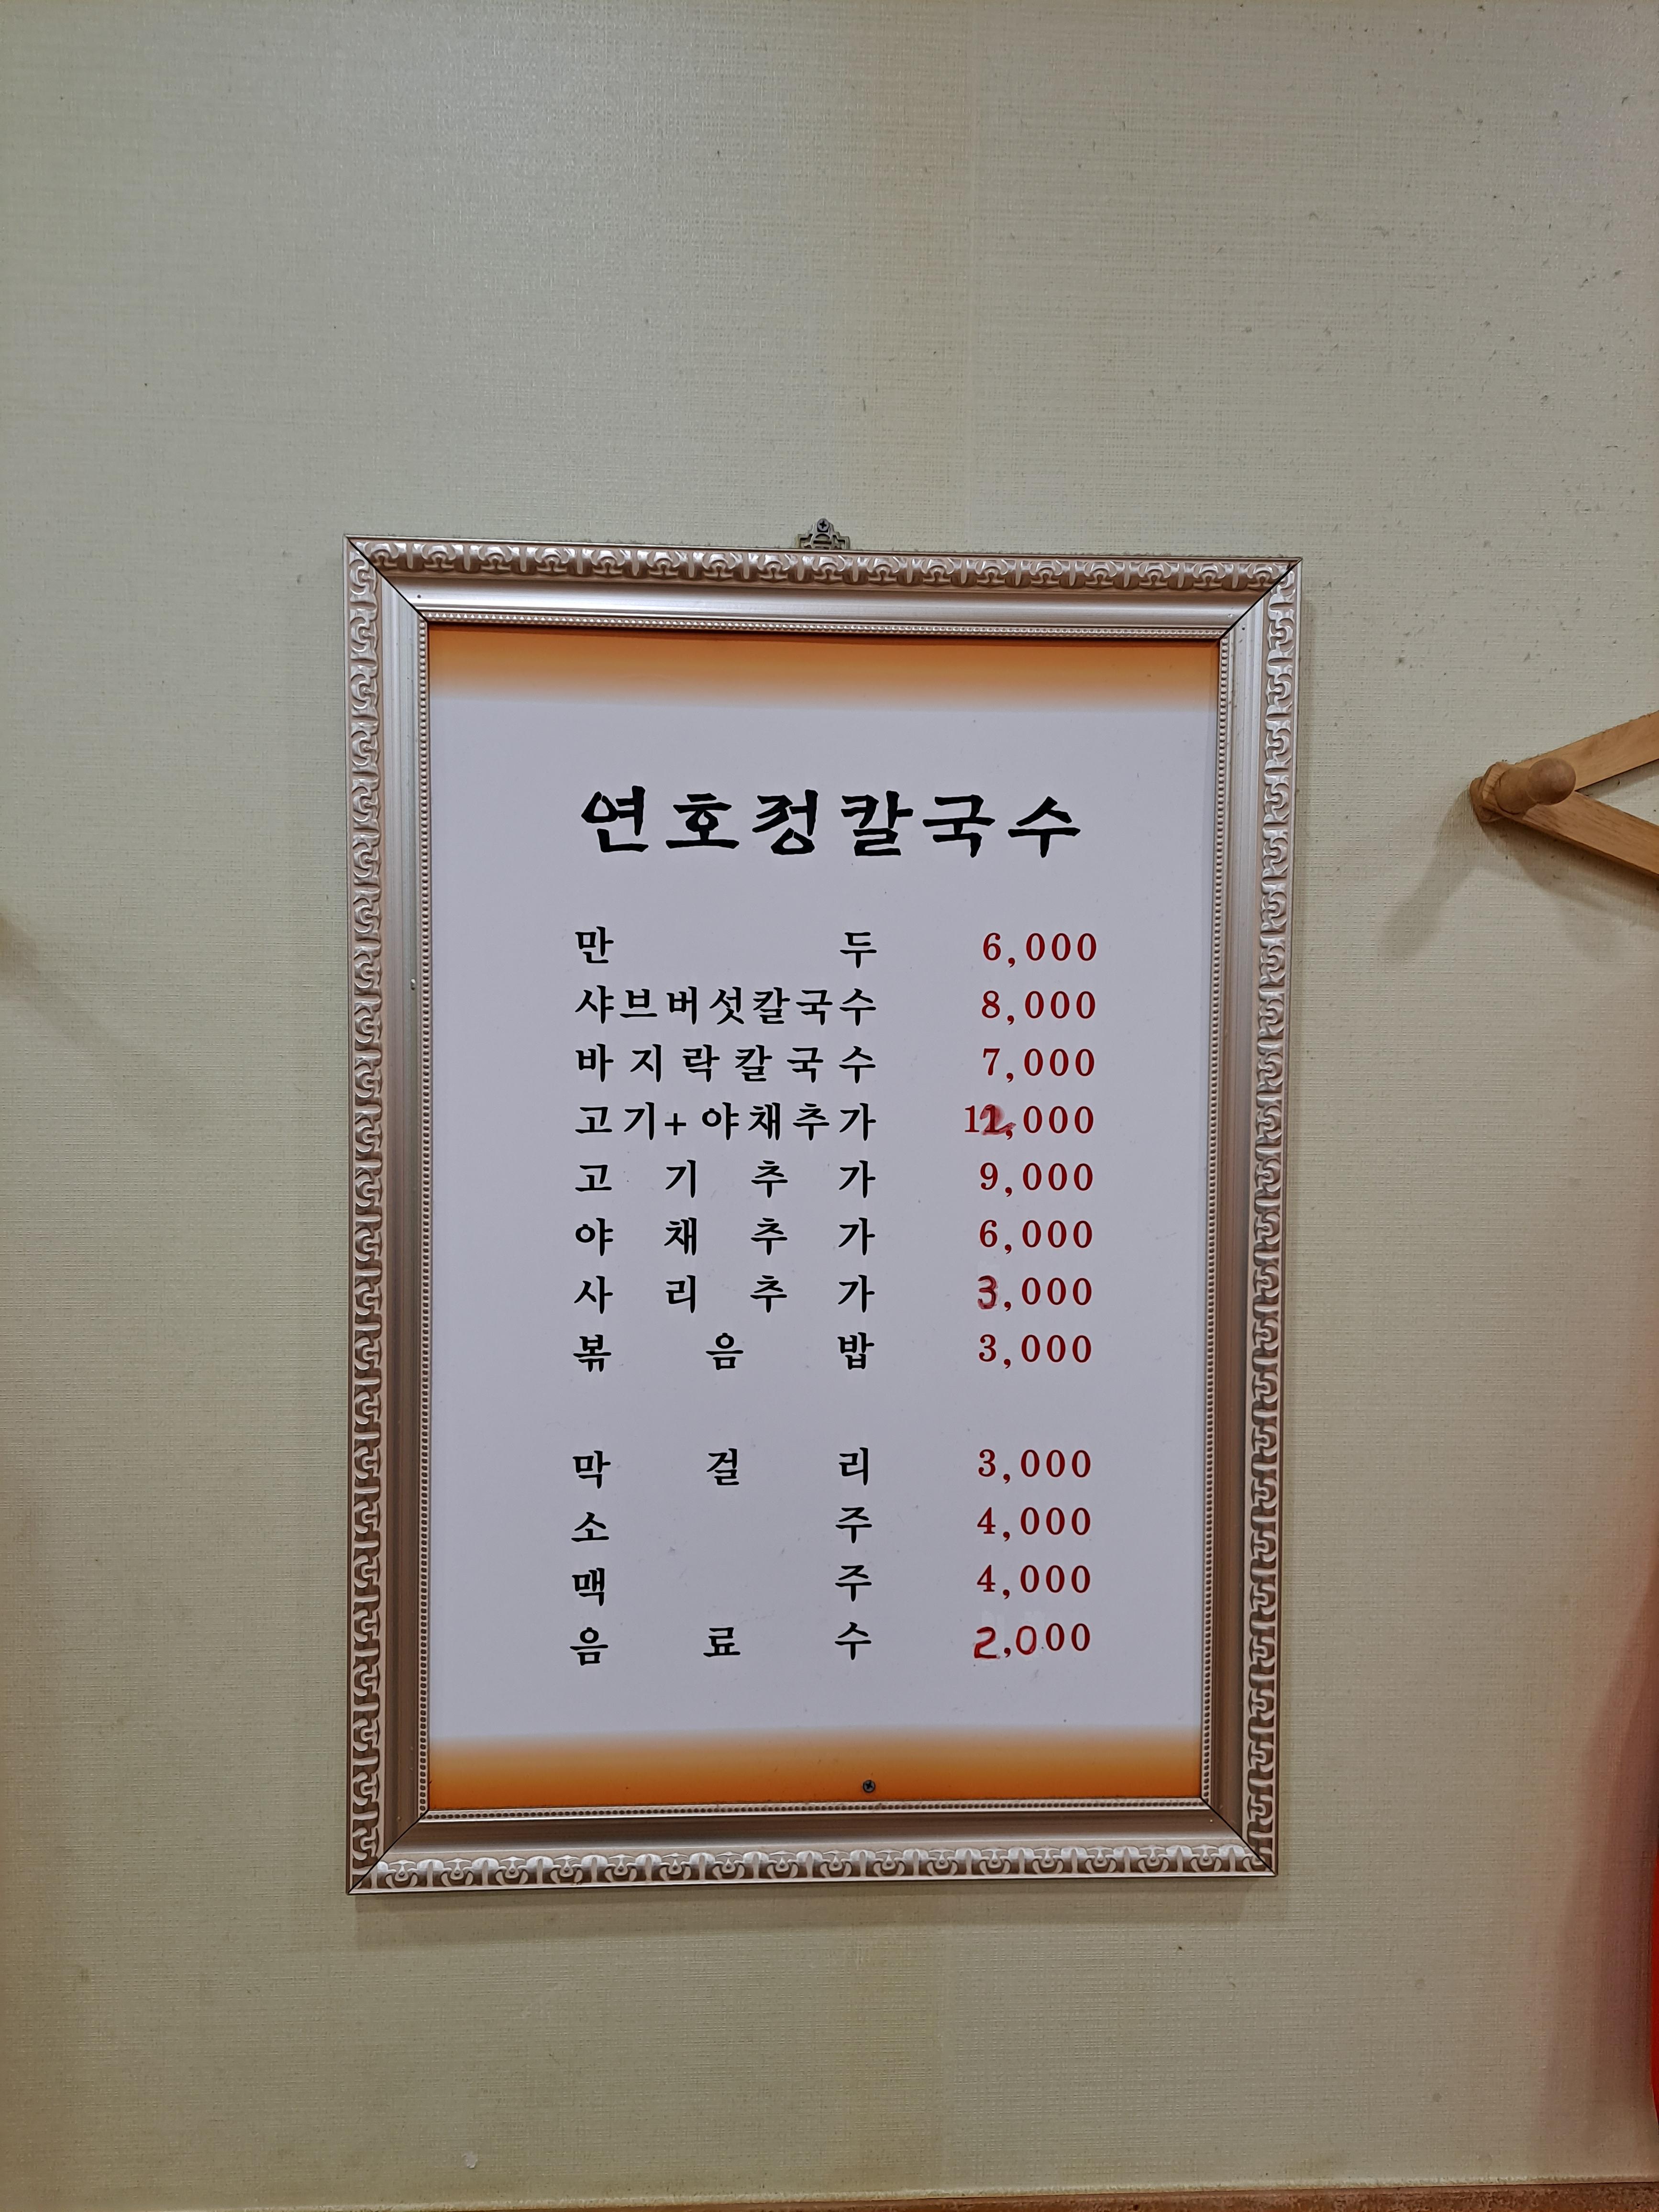 연호정칼국수
만두 6,000
샤브버섯칼국수 8,000
바지락칼국수 7,000
고기+야채추가 12,000
고기추가 9,000
야채추가 6,000
사리추가 3,000
볶음밥 3,000
막걸리 3,000
소주 4,000
맥주 4,000
음료수 2,000